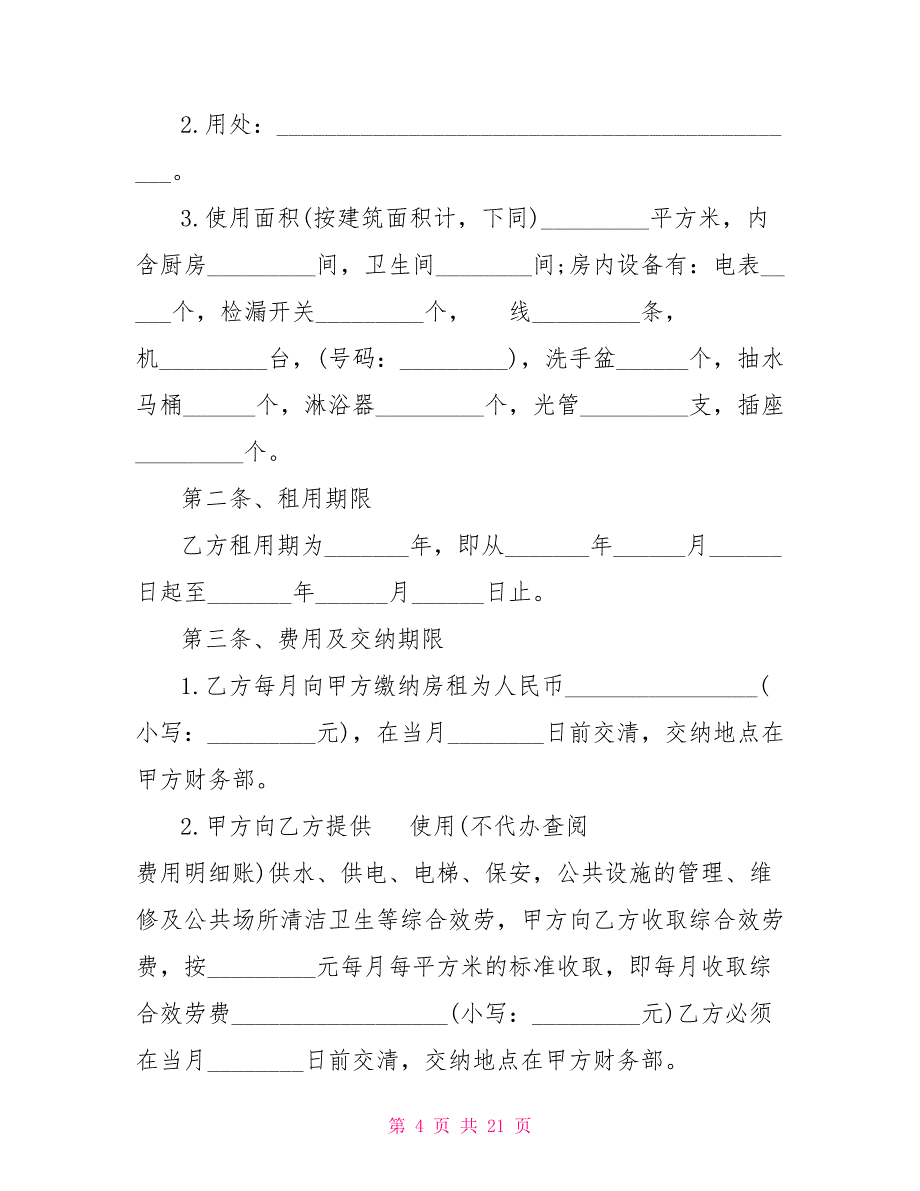 2.用处：__________________________________________
___。
3.使用面积(按建筑面积计，下同)_________平方米，内
含厨房_________间，卫生间________间;房内设备有：电表__
___个，检漏开关_________个，　　线_________条，
机_________台，(号码：_________)，洗手盆______个，抽水
马桶______个，淋浴器_________个，光管_________支，插座
_________个。
第二条、租用期限
乙方租用期为_______年，即从_______年______月______
日起至_______年______月______日止。
第三条、费用及交纳期限
1.乙方每月向甲方缴纳房租为人民币________________(
小写：_________元)，在当月________日前交清，交纳地点在
甲方财务部。
2.甲方向乙方提供　　使用(不代办查阅
费用明细账)供水、供电、电梯、保安，公共设施的管理、维
修及公共场所清洁卫生等综合效劳，甲方向乙方收取综合效劳
费，按_________元每月每平方米的标准收取，即每月收取综
合效劳费__________________(小写：_________元)乙方必须
在当月________日前交清，交纳地点在甲方财务部。
第 4 页 共 21 页